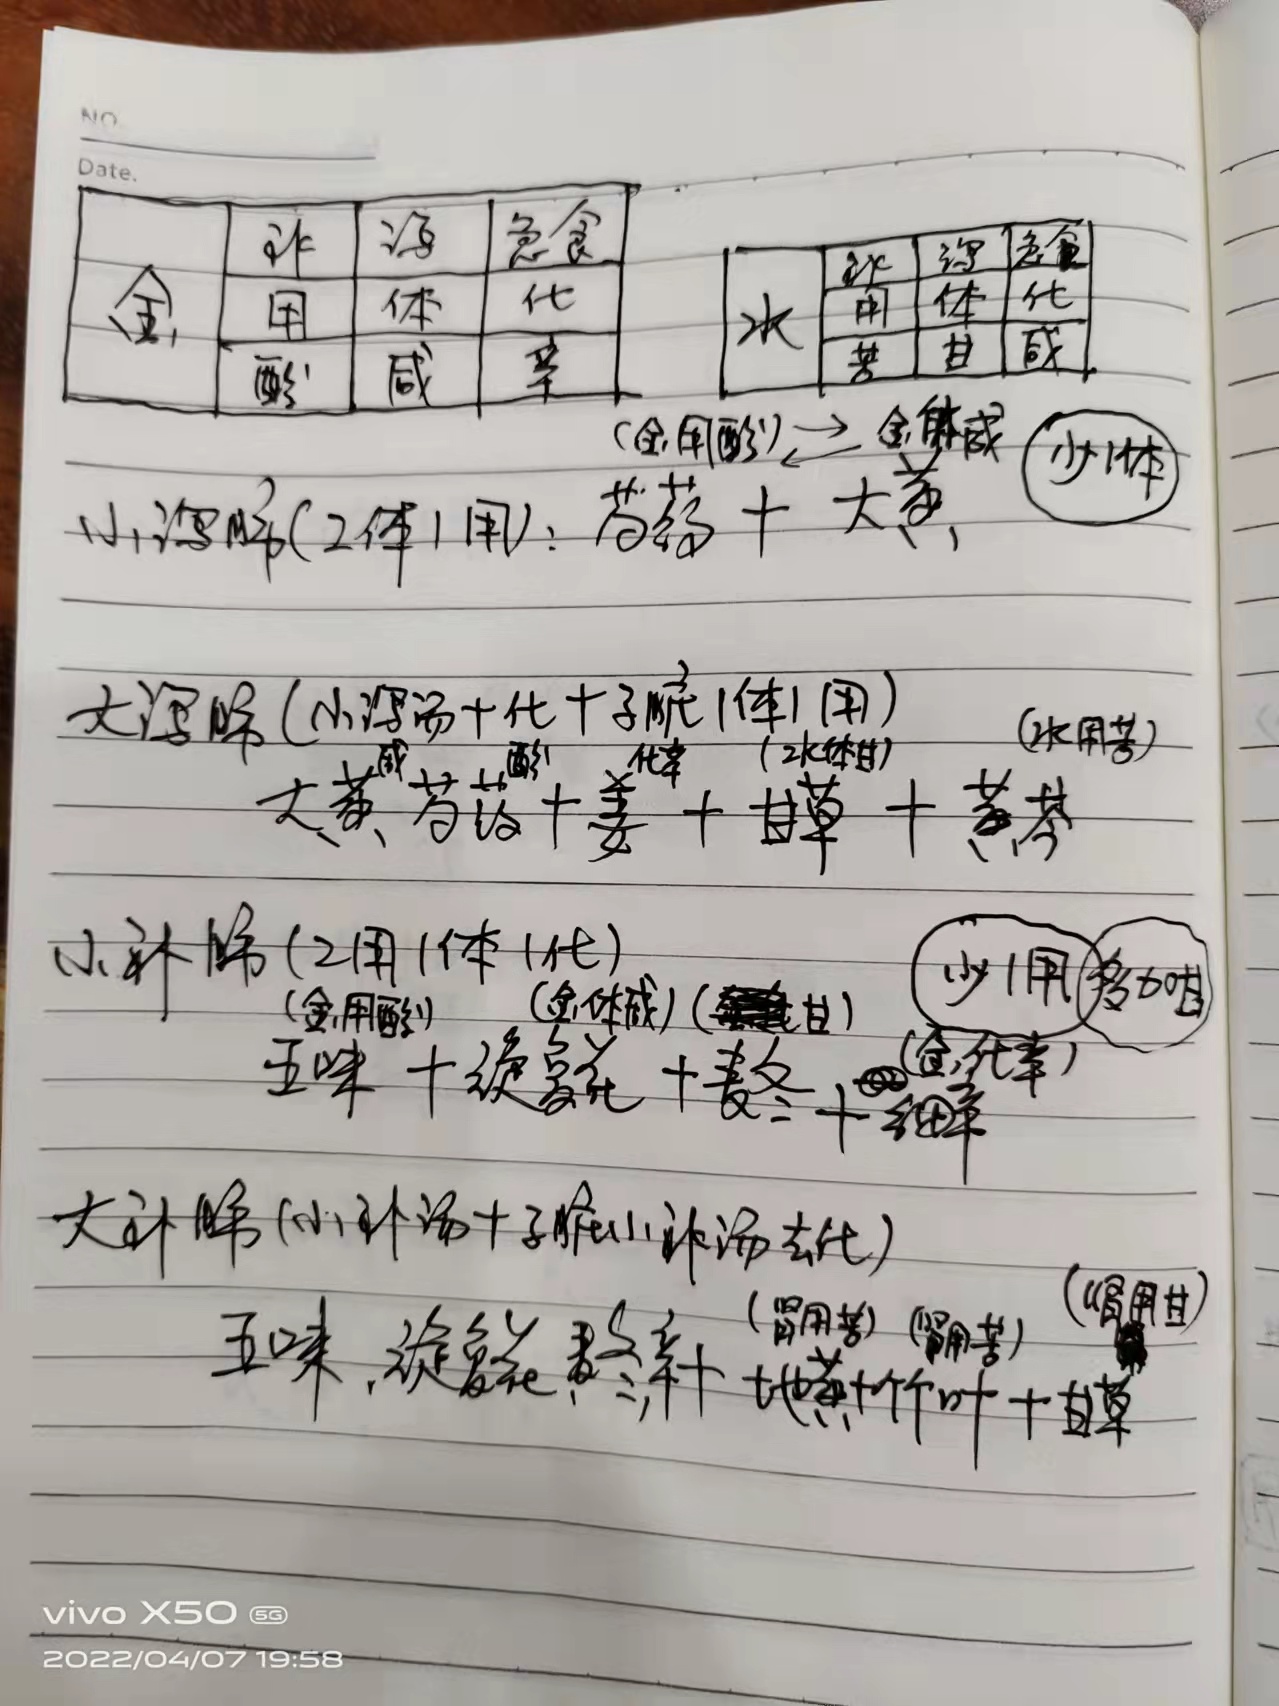 NO.
Date.
金 补 泻 急食
用 体 化
酸 咸 辛
水 补 泻 急食
用 体 化
苦 甘 咸
(金用酸) → 金体咸
小泻肺(2体1用): 芍药 + 大黄 少1体
大泻肺(小泻汤+化+子脏1体1用)
咸 酸 化辛 (水体甘) (水用苦)
大黄 芍药 + 姜 + 甘草 + 黄芩
小补肺(2用1体1化) 少1用 多加甘
(金用酸) (金体咸) (甘) (金化辛)
五味 + 旋复花 + 麦冬 + 细辛
大补肺(小补汤+子脏小补汤去化)
(肾用苦) (肾用苦) (肾用甘)
五味、旋复花 麦冬 辛+ 地黄+竹叶+甘草
vivo X50 5G
2022/04/07 19:58